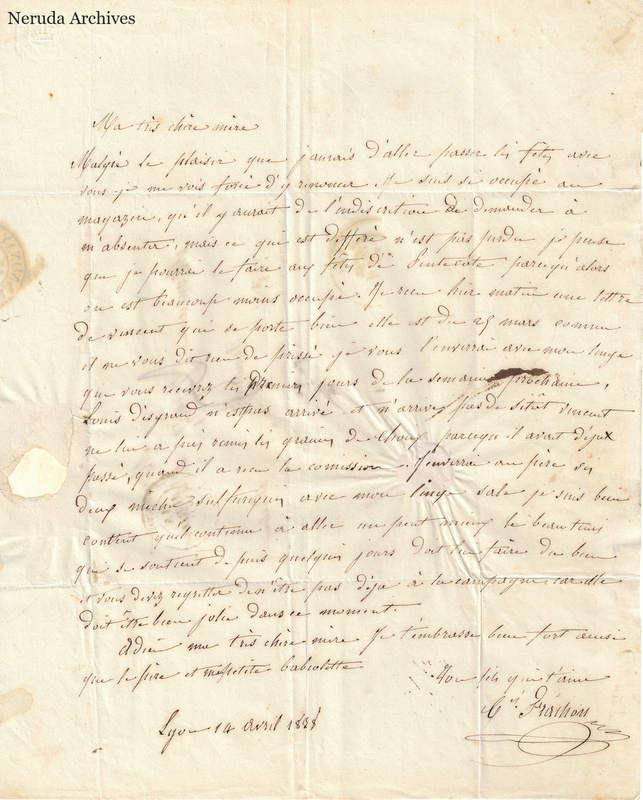 Neruda Archives
Ma très chère mère
Malgré le plaisir que j'aurais d'aller passer les fêtes avec
vous je me vois forcé d'y renoncer. Je suis si occupé au
magazin, qu'il y aurait de l'indiscrition de demander à
m'absenter, mais ce qui est différé n'est pas perdu je pense
que je pourrai le faire aux fêtes de Pentecote parcequ'alors
on est beaucoup moins occupé. Je recu hier matin une lettre
de vincent qui se porte bien elle est du 25 mars comme
il ne vous dit rien de préssé je vous l'enverrai avec mon linge
que vous recevrez les premiers jours de la semaine prochaine,
Louis d'isgrand n'est pas arrivé et n'arrive pas de sitôt vincent
ne lui a pas remis les graines de choux parcequ il avait déja
passé, quand il a recu la comission J'enverrai au père ses
deux mèches sulfuriques avec mon linge sale je suis bien
content qu'il continue à aller un peut mieux le beau tems
qui se soutient depuis quelques jours doit lui faire du bien
et vous devez regretter de n'être pas déja à la campagne, car elle
doit être bien jolie dans ce moment.
Adieu ma très chère mère Je t'embrasse bien fort ainsi
que le père et ma petite babiolette
Ton fils qui t'aime
Frachon
Lyon 14 avril 1838